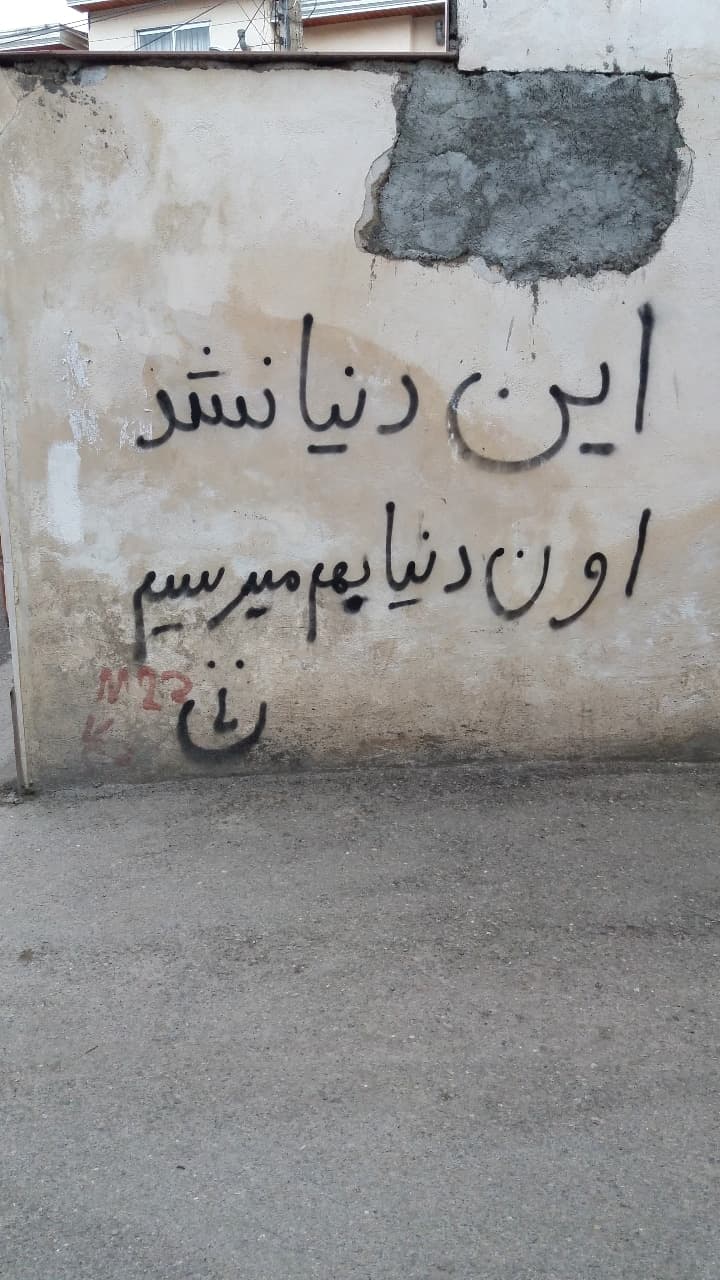 این دنیا نشد
اون دنیا بهم میرسیم
M